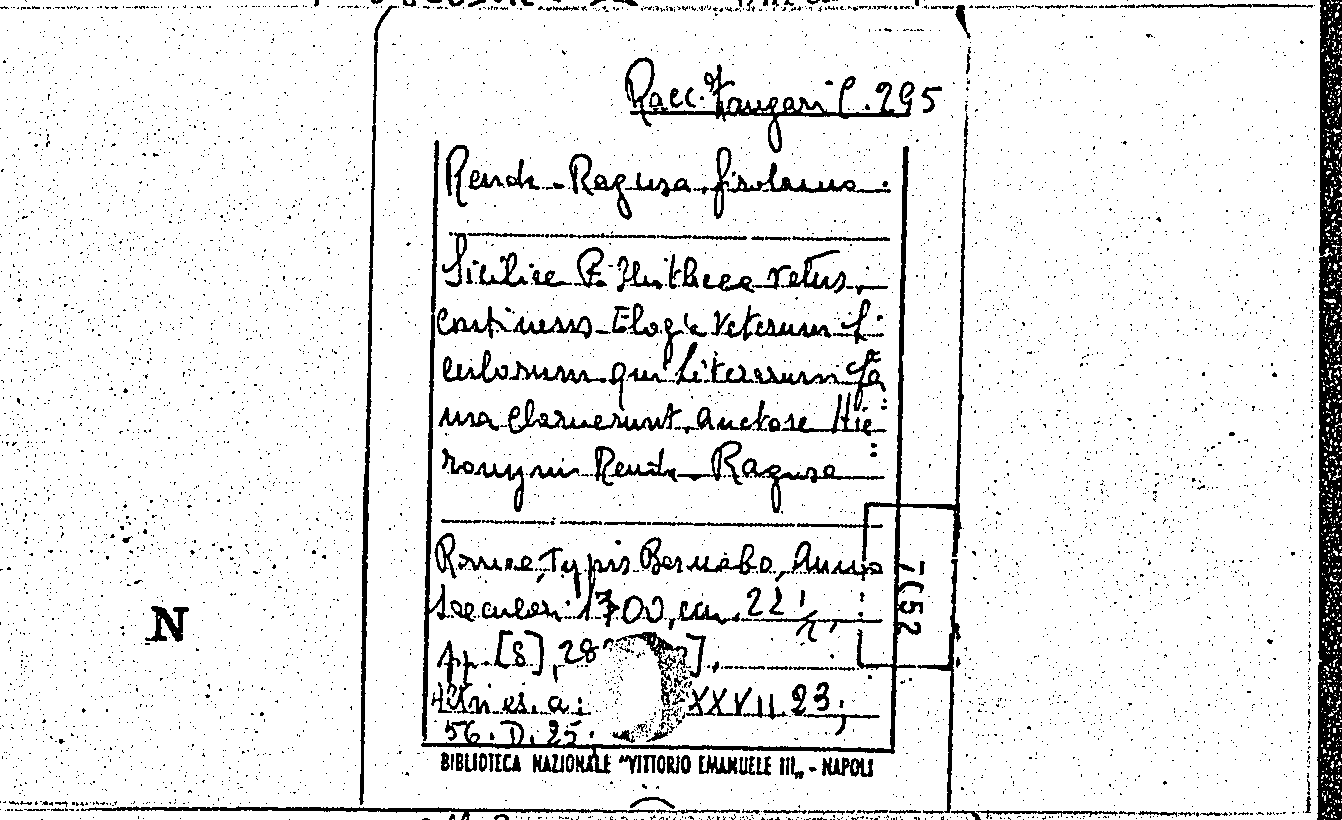 Racc. Zangari C. 295
Rende-Ragusa, Girolamo.
Siciliae Bibliotheca vetus,
continens Elogia veterum Si-
culorum qui literarum fa
ma claruerunt, auctore Hie
ronymi Renda-Ragusa
Romae, Typis Bernabò, Anno
Saeculari 1700, cm. 22 1/2,
pp. [8], 28
Altri es. a: XXVII 23;
56. D. 25.
7652
N
BIBLIOTECA NAZIONALE "VITTORIO EMANUELE III„ - NAPOLI